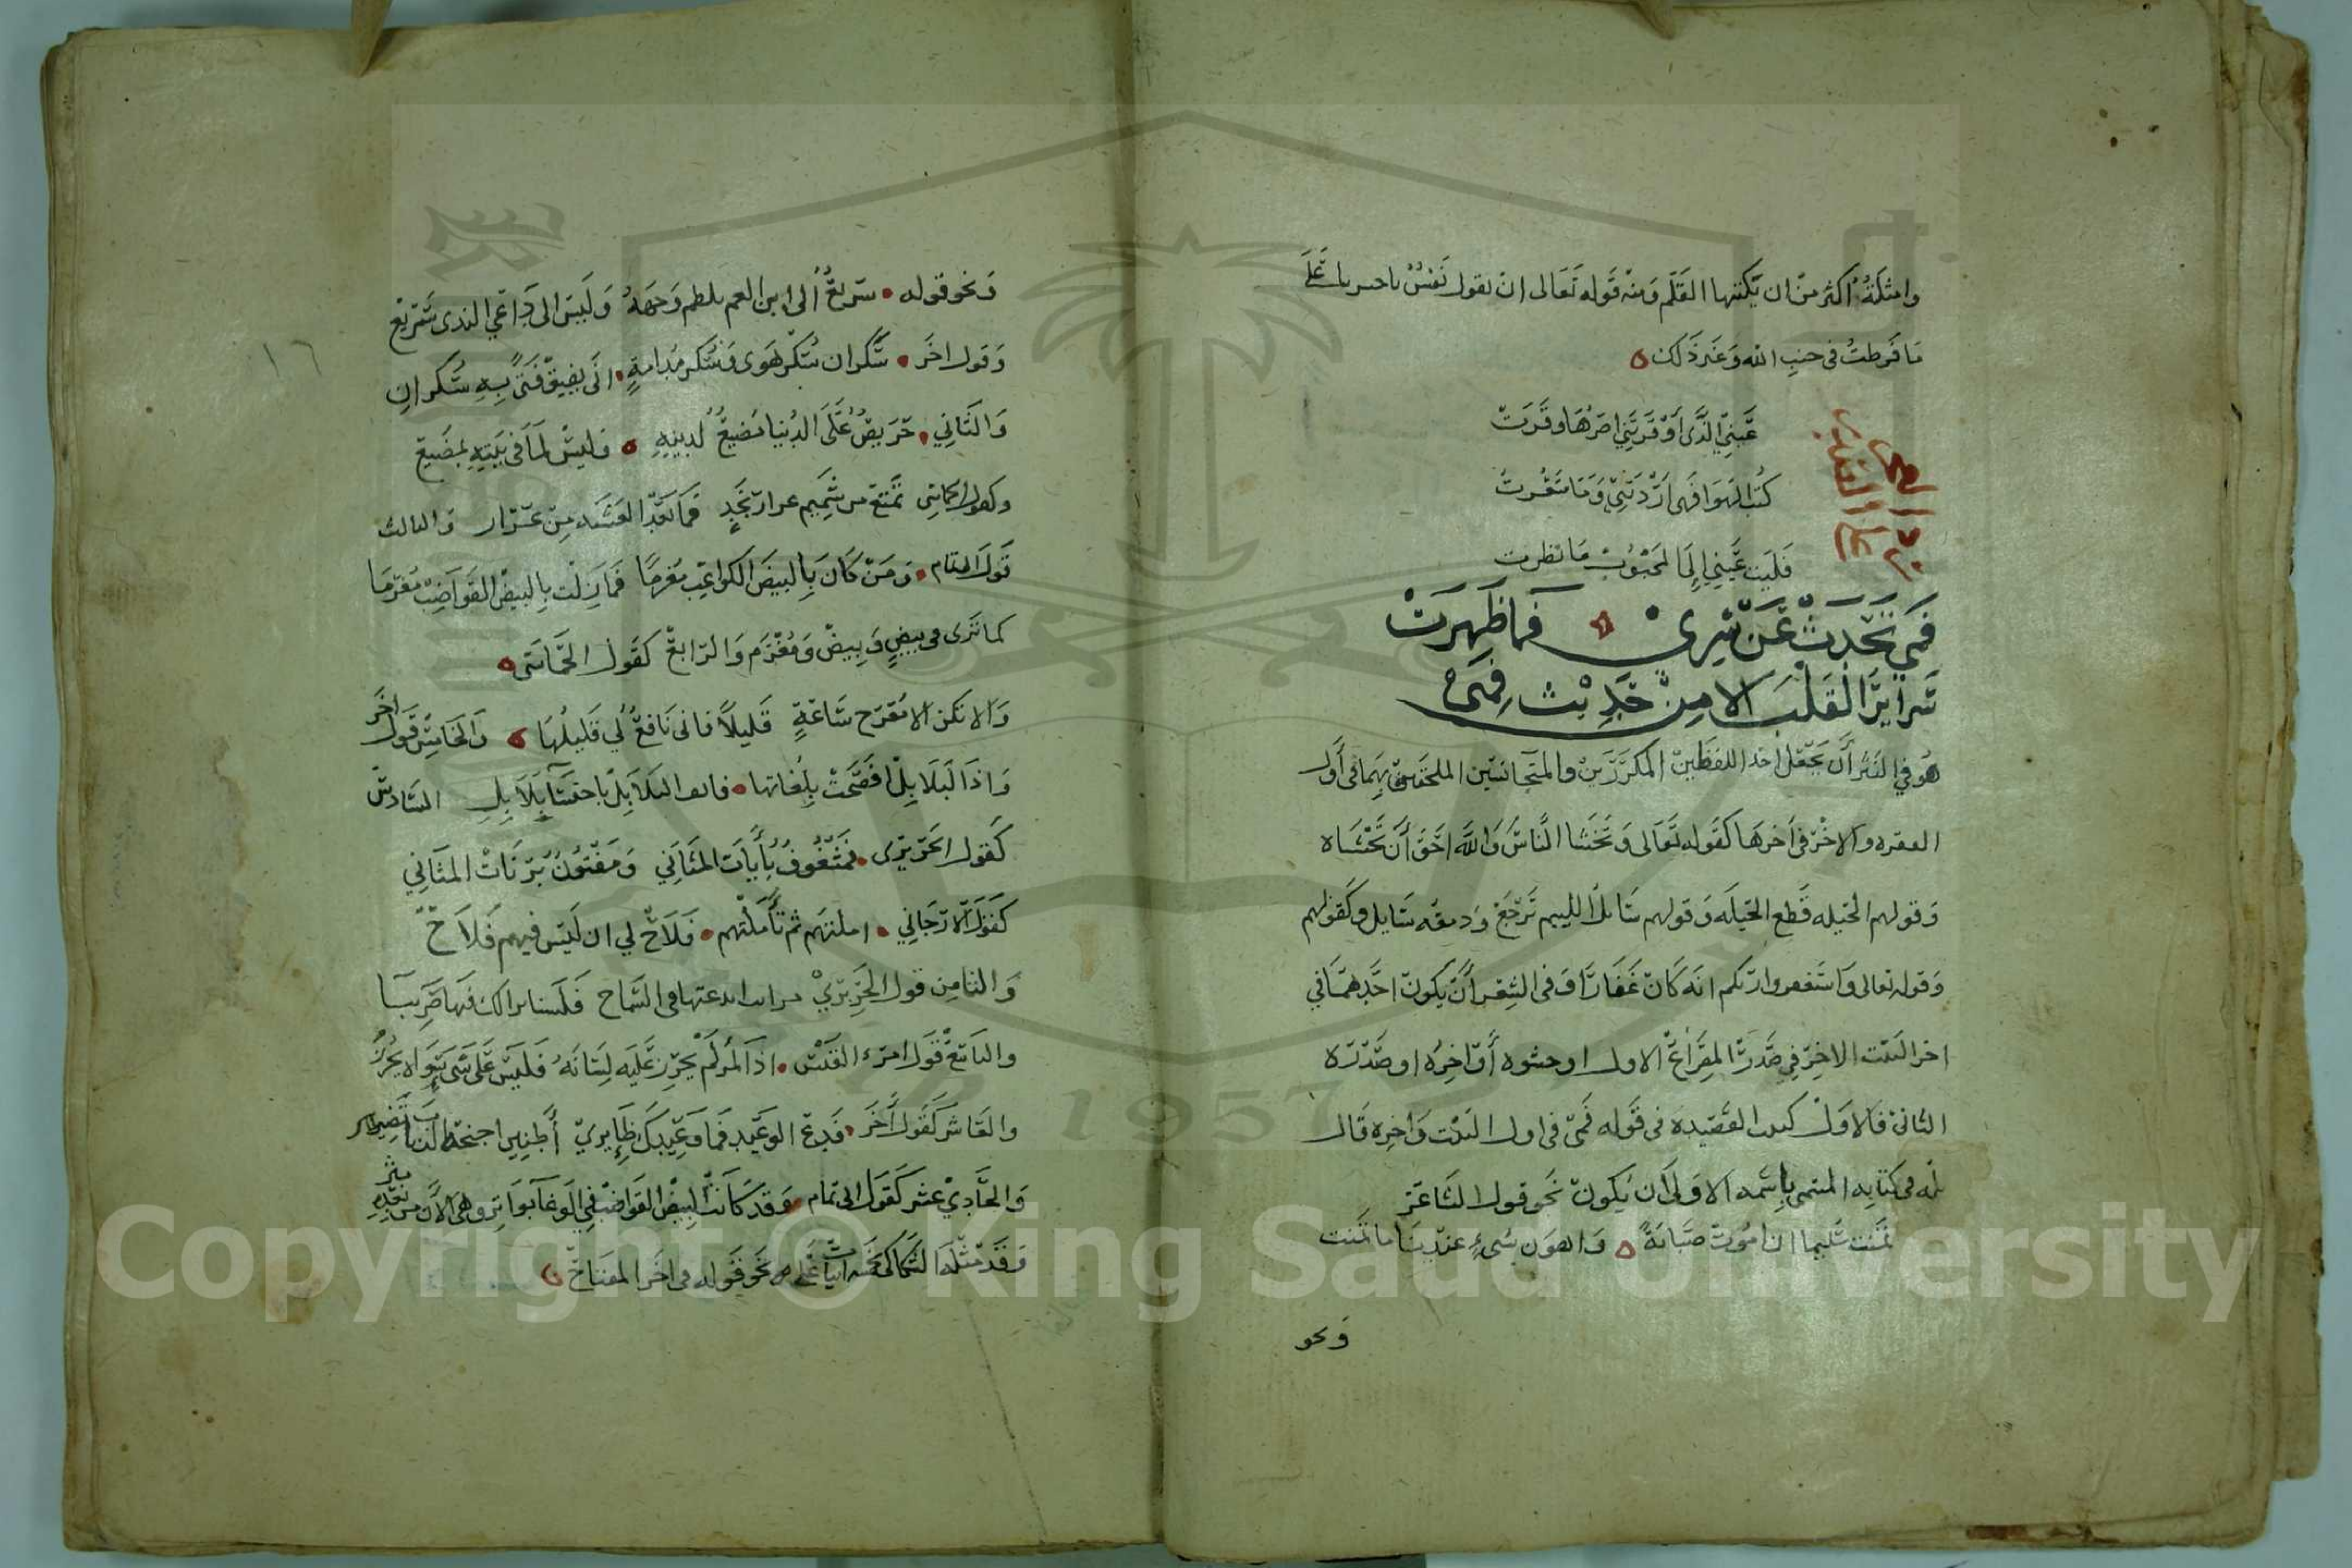 وامثلته أكثر من ان يكتبها القلم ومنه قوله تعالى ان تقول نفس ياحسرتا على
ما فرطت في جنب الله وغير ذلك
عيني الذى اوقرتني اصرها وقرت
كتب الهوا فهى اردتني وما شعرت
فليت عيني إلى المحبوب ما نظرت
رد العجز
على الصدر
فمي تحدث عن سري فما ظهرت
سراير القلب الا من حديث فمى
هو في النثر أن يجعل احد اللفظين المكررين والمتجانسين الملحقين بهما في أول
الفقره والاخر في اخرها كقوله تعالى وتخشا الناس والله احق أن تخشاه
وقولهم الحيله قطع الحيله وقولهم سايل اللييم ترجع ودمعه سايل وكقولهم
وقوله تعالى واستغفروا ربكم انه كان غفارا وفى الشعر أن يكون احدهما في
اخر البيت الاخر في صدر المصراع الاول او حشوه أو اخره او صدره
الثانى فالاول كبيت القصيده فى قوله فمى فى اول البيت واخره قال
فى كتابه المسمى باسمه الاولى أن يكون نحو قول الشاعر
تمنت سليما ان اموت صبابة واهون شيء عندنا ما تمنت
ونحو
ونحو قوله سريع الى ابن العم يلطم وجهه وليس الى داعي الندى بسريع
وقول اخر سكران سكر هوى وسكر مدامة انى يفيق فتى به سكران
والثاني حريص على الدنيا مضيع لدينه وليس لما في بيته بمضيع
وكقول الحماسى تمتع من شميم عرار نجد فما بعد العشيه من عرار والثالث
قول ابى تمام ومن كان بالبيض الكواعب مغرما فما زلت بالبيض القواضب مغرما
كما ترى في بيض وبيض ومغرم والرابع كقول الحماسى
والا نكن الا مقرح ساعة قليلا فانى نافع لي قليلها والخامس قول اخر
واذا البلابل افصحت بلغاتها فانف البلابل باحتسا بلابل السادس
كقول الحريرى فمشغوف بأيات المثاني ومفتون برنات المثاني
كقول الارجاني املتهم ثم تأملتهم فلاح لي ان ليس فيهم فلاح
والثامن قول الحريري ضرايب ابدعتها فى السماح فلسنا نراك فيها ضريبا
والتاسع قول امرء القيس اذا المرء لم يخزن عليه لسانه فليس على شى سواه بخزان
والعاشر كقول أخر فدع الوعيد فما وعيدك ظايري أطنين اجنحة الذباب يضير
والحادي عشر كقول ابى تمام وقد كانت البيض القواضب في الوغا بواتر وهى الان من بعده بتر
وقد مثله السكاكى نحو قوله فى اخر المفتاح
١٦
Copyright © King Saud University
1957